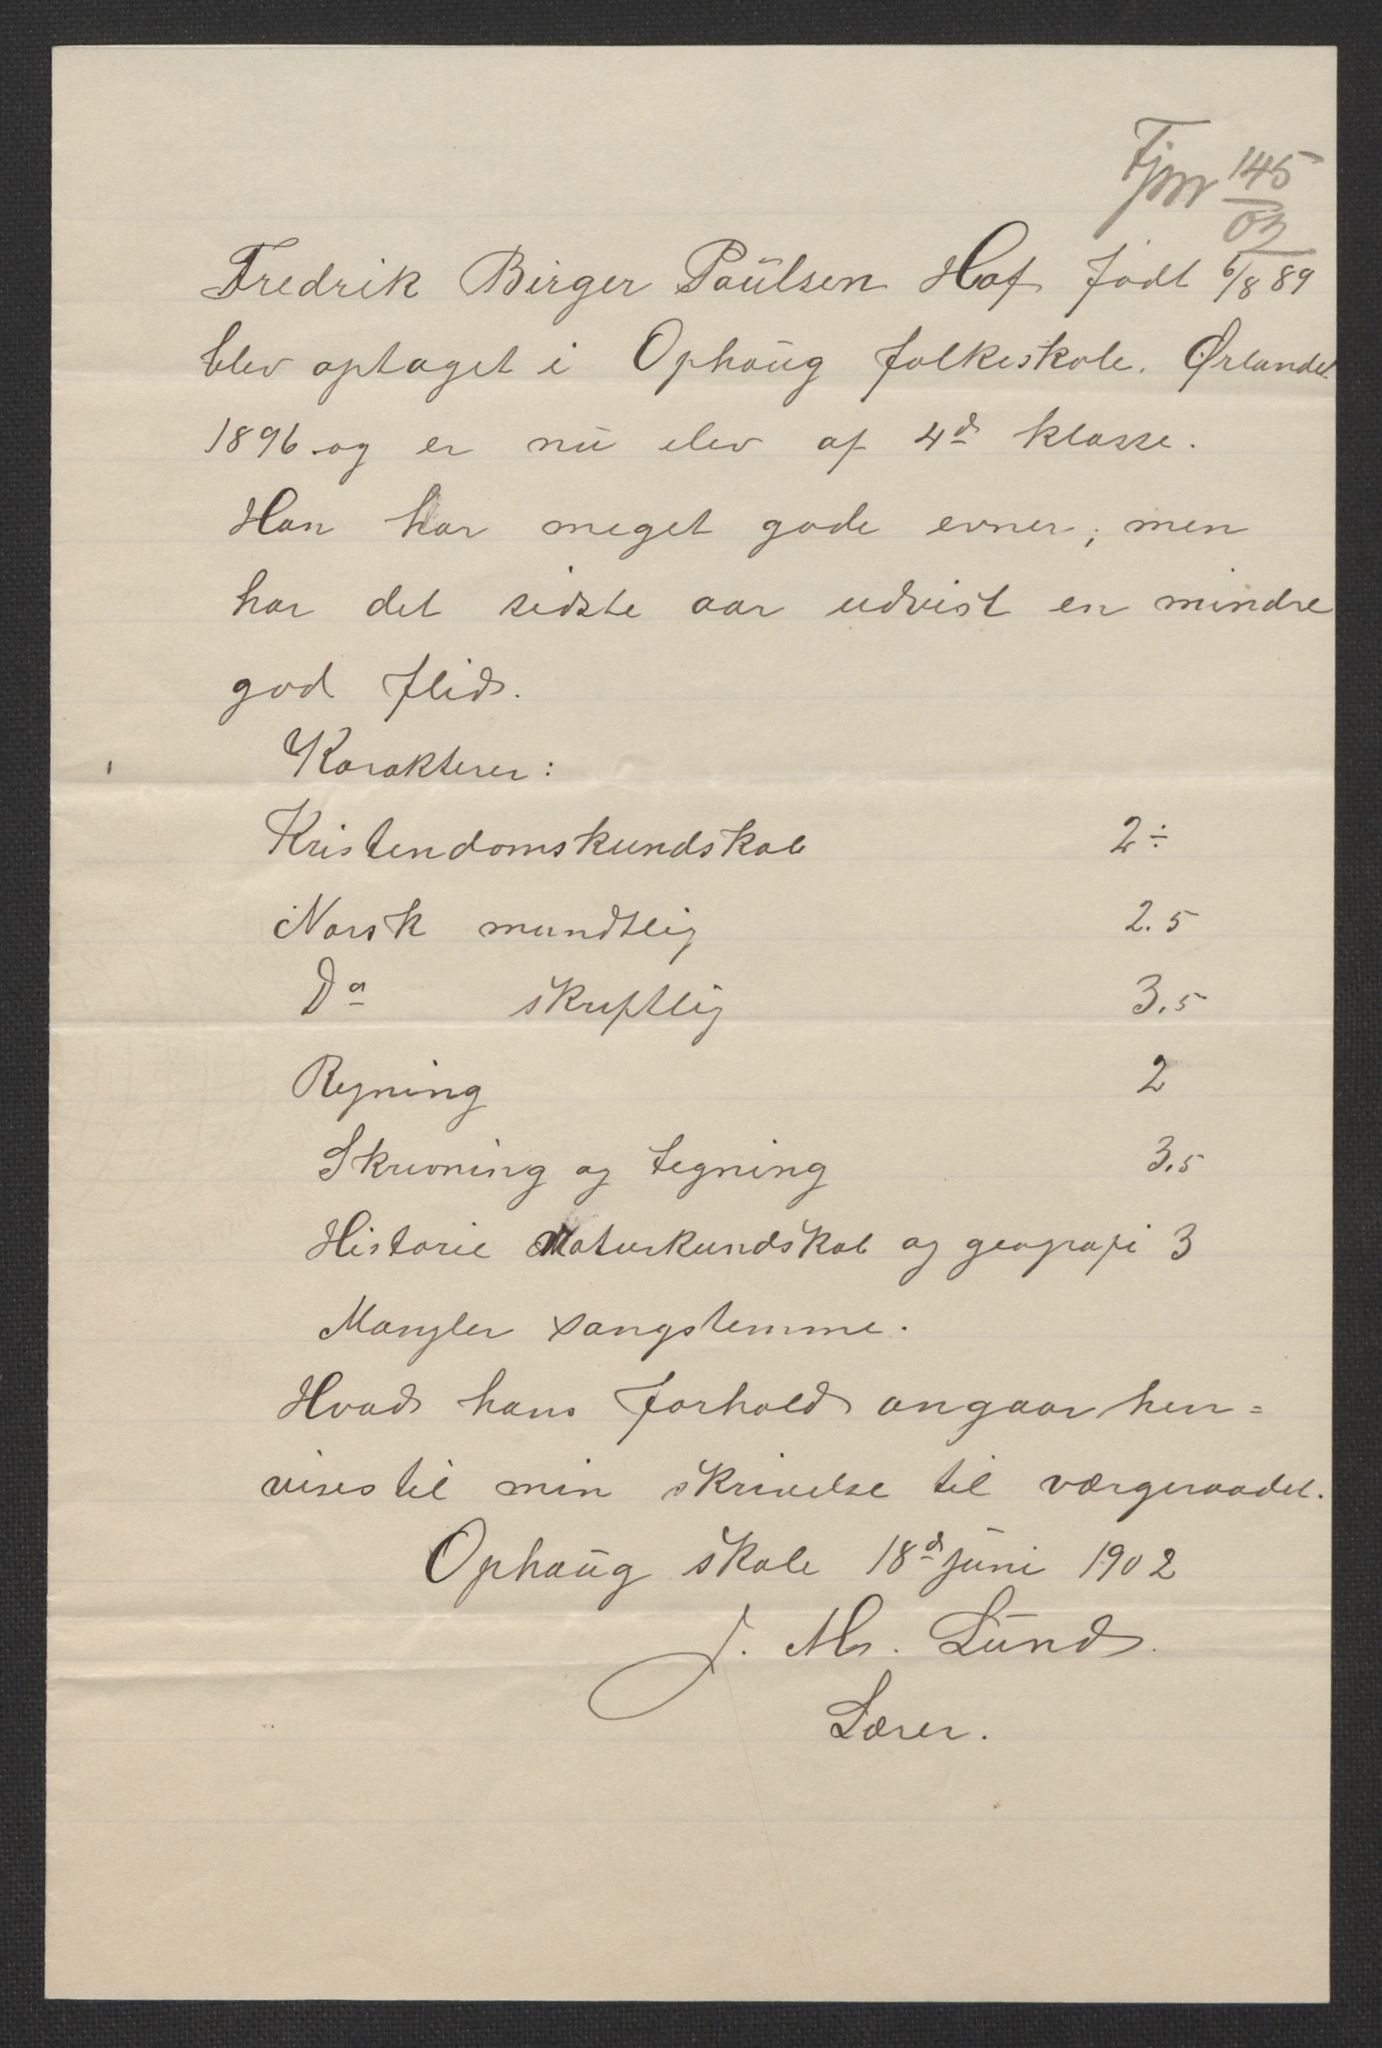 145
03
Fredrik Birger Paulsen Hof født 6/8 89
blev optaget i Ophaug folkeskole. Ørlandet
1896 og er nu elev af 4d klasse.
Han har meget gode evner; men
har det sidste aar udvist en mindre
god flid.
Karakterer:
Kristendomskundskab 2÷
Norsk mundtlig 2.5
Do skriftlig 3.5
Regning 2
Skrivning og tegning 3.5
Historie Naturkundskab og geografi 3
Mangler sangstemme.
Hvad hans forhold angaar hen=
vises til min skrivelse til værgeraadet.
Ophaug skole 18d juni 1902
J. M. Lund.
Lærer.